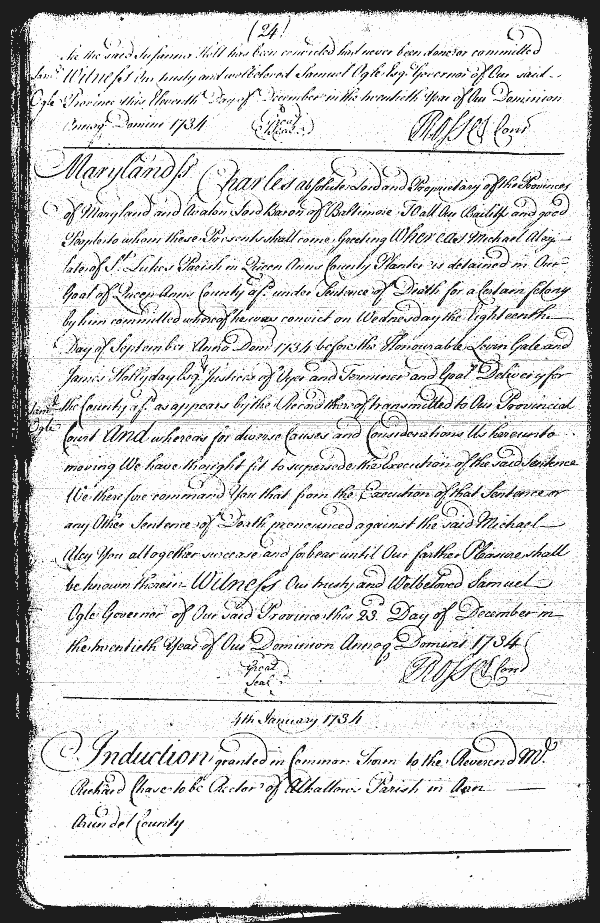 (24)
As the said Susanna Hill has been convicted had never been done or committed
Witness Our trusty and welbeloved Samuel Ogle Esqr. Governor of Our said
Saml.
Ogle
Province this Eleventh Day of December in the twentieth Year of Our Dominion
Annoq Domini 1734
Great
Seal
Maryland ss Charles absolute Lord and Proprietary of the Provinces
of Maryland and Avalon Lord Baron of Baltimore To all Our Bailifs and good
People to whom these Presents shall come Greeting Whereas Michael Aley
late of St. Lukes Parish in Queen Anns County Planter is detained in Our
Goal of Queen Anns County afd. under Sentence of Death for a Certain felony
by him committed whereof he was convict on Wednesday the Eighteenth
Day of September Anno Domi 1734 before the Honourable Levin Gale and
James Hollyday Esqrs. Justices of Oyer and Terminer and Goal Delivery for
Saml.
Ogle
the County afd. as appears by the Record thereof transmitted to Our Provincial
Court And whereas for diverse Causes and Considerations Us hereunto
moving We have thought fit to supersede the Execution of the said Sentence
We therefore command You that from the Execution of that Sentence or
any Other Sentence of Death pronounced against the said Michael
Aley You altogether surcease and forbear until Our farther Pleasure shall
be known therein Witness Our trusty and Welbeloved Samuel
Ogle Governor of Our Said Province this 23d. Day of December in
the twentieth Year of Our Dominion Annoq Domini 1734
Great
Seal
4th January 1734
Induction granted in Common Form to the Reverend Mr.
Richard Chase to be Rector of Alhallows Parish in Ann
Arundel County